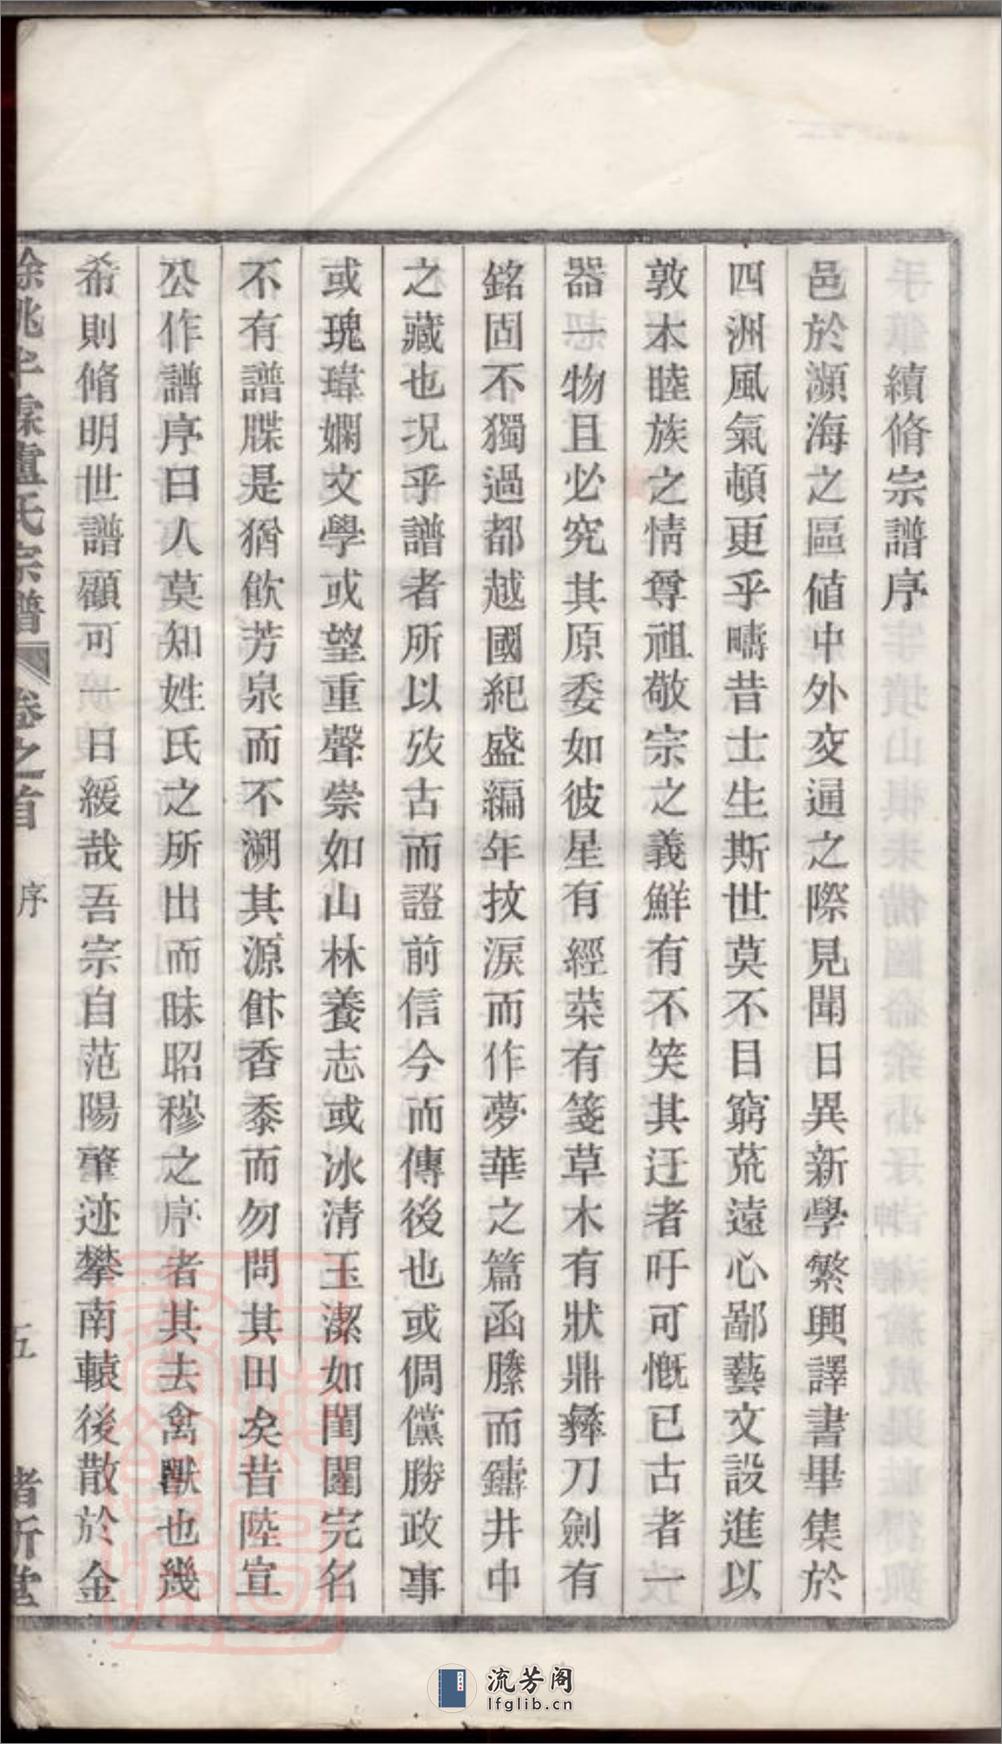 續脩宗譜序
邑於瀕海之區値中外交通之際見聞日異新學繁興譯書畢集於
四洲風氣頓更乎疇昔士生斯世莫不目窮荒遠心鄙藝文設進以
敦本睦族之情尊祖敬宗之義鮮有不笑其迂者吁可慨已古者一
器一物且必究其原委如彼星有經菜有箋草木有狀鼎彝刀劍有
銘固不獨過都越國紀盛編年抆淚而作夢華之篇函縢而鑄井中
之藏也況乎譜者所以攷古而證前信今而傳後也或倜儻勝政事
或瑰瑋嫻文學或望重聲崇如山林養志或冰清玉潔如閨闥完名
不有譜牒是猶飲芳泉而不溯其源飰香黍而勿問其田矣昔陸宣
公作譜序曰人莫知姓氏之所出而昧昭穆之序者其去禽獸也幾
希則脩明世譜顧可一日緩哉吾宗自范陽肇迹攀南轅後散於金
餘姚半霖盧氏宗譜 卷之首 序 五 堂
流芳阁
lfglib.cn